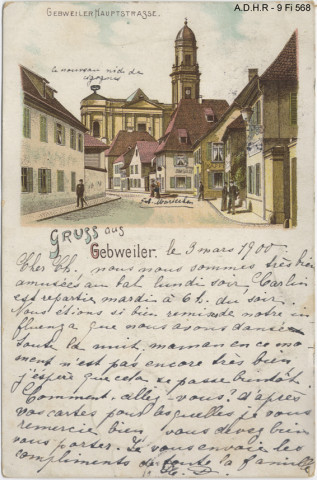 A.D.H.R - 9 Fi 568
GEBWEILER HAUPTSTRASSE.
le nouveau nid de
cigognes
GRUSS aus
Gebweiler. le 3 mars 1900
Cher Ch, nous nous sommes très bien
amusées au bal lundi soir, Carlin
est repartie mardi à 6h. du soir.
Nous étions si bien remis de notre in
fluenza que nous avons dansé
toute la nuit, maman en ce mo
ment n'est pas encore très bien
j'espère que cela se passe bientôt.
Comment allez-vous? d'après
vos cartes pour lesquelles je vous
remercie bien, vous devez bien
vous porter. Je vous envoie les
compliments de toute la famille